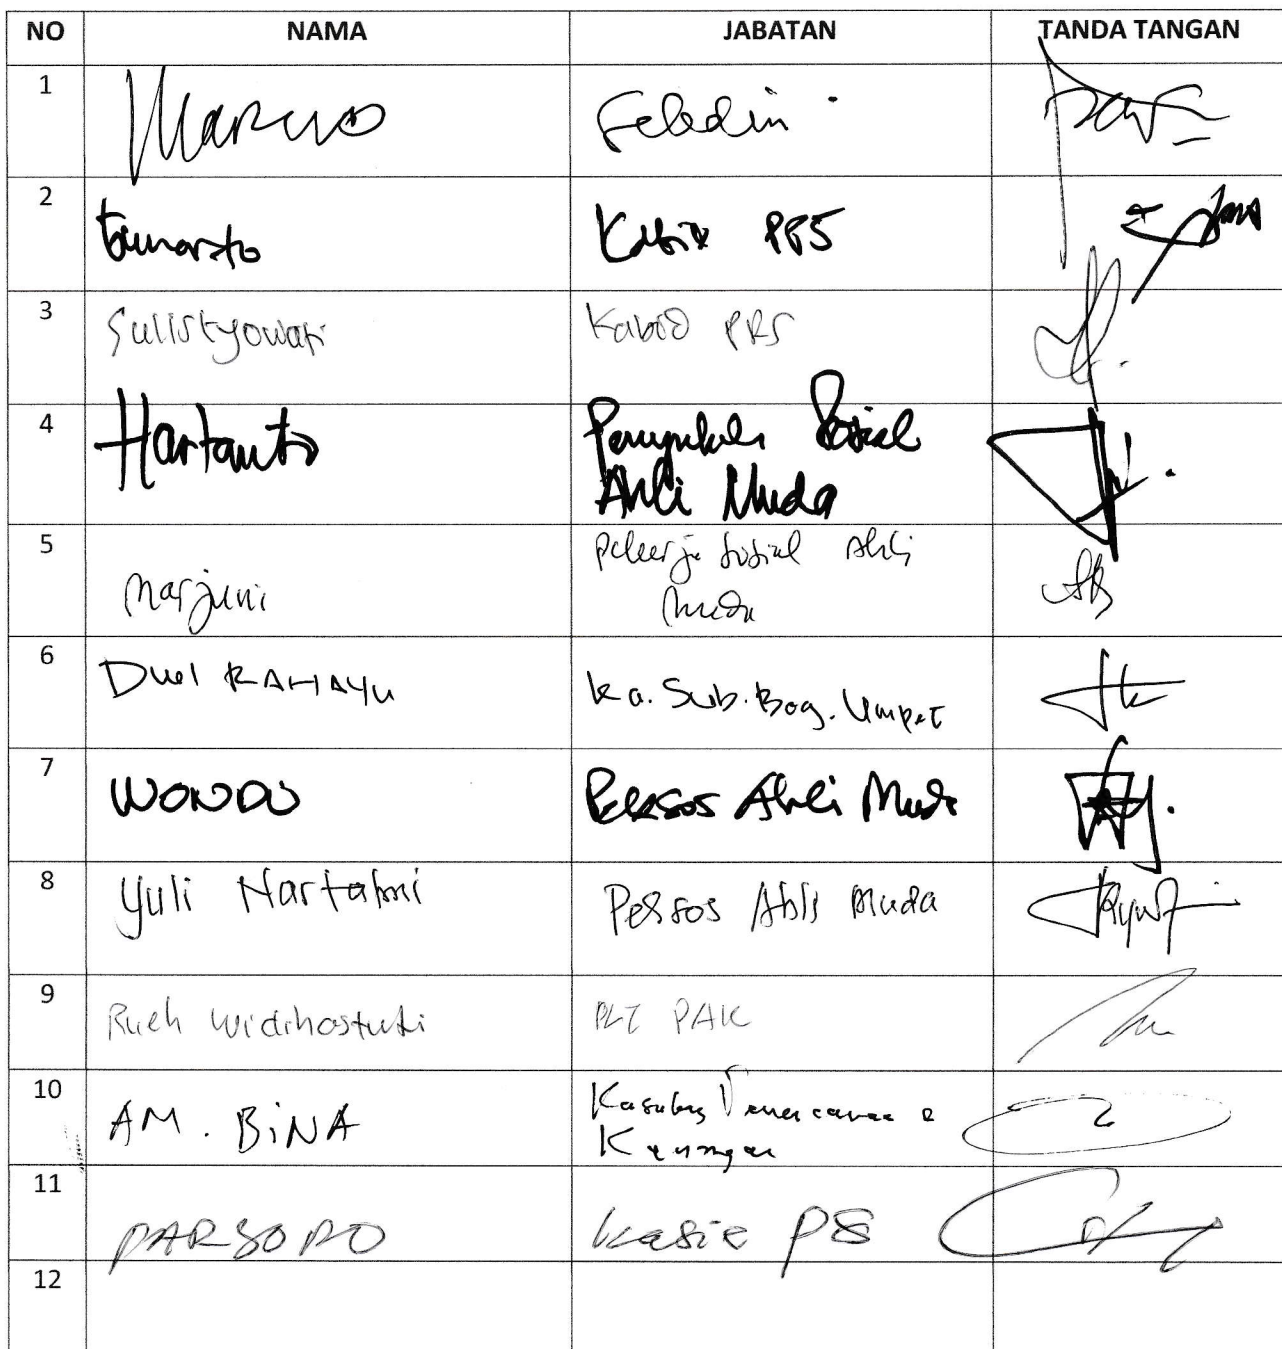 NO NAMA JABATAN TANDA TANGAN
1 Marwo
2 Kasie PPS
3 Sulistyowati Kabid PRS
4 Hartanto Penyuluh Sosial
Ahli Muda
5 Marjuni Pekerja Sosial Ahli
Muda
6 Dwi RAHAYU Ka. Sub. Bag. Umpeg
7 WONDO Peksos Ahli Muda
8 Yuli Hartatmi Peksos Ahli Muda
9 Rueh Widihastuti PLT PAK
10 AM. BiNA Kasubag
Keuangan
11 PARSORO Kasie PS
12